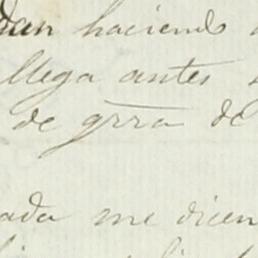 dan haciendo
llega antes
de grra de
ada me dicen